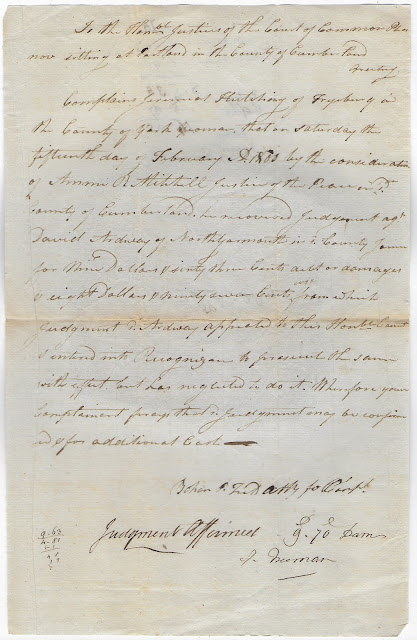 To the Hon.ble Justices of the Court of Common Pleas
now sitting at Portland in the County of Cumberland
Complains Jeremiah Hutchins of Fryeburg in
the County of York yeoman, that on Saturday the
fifteenth day of February by the consideration
of Ammi R Mitchell Justice of the Peace in sd
county of Cumberland, he recovered Judgement agt
David Ardway of North Yarmouth in sd County
for Nine Dollars & sixty three Cents debt or damages
& eight Dollars & ninety seven Cents costs from which
Judgment sd Ardway appealed to this Honble Court
& entered into Recognizance to prosecute the same
with effect but has neglected to do it. Wherefore your
Complainant prays that sd Judgment may be confirm
ed & for additional Cost
for Compt.
Judgment Affirmed 9.70 Dam
9.63